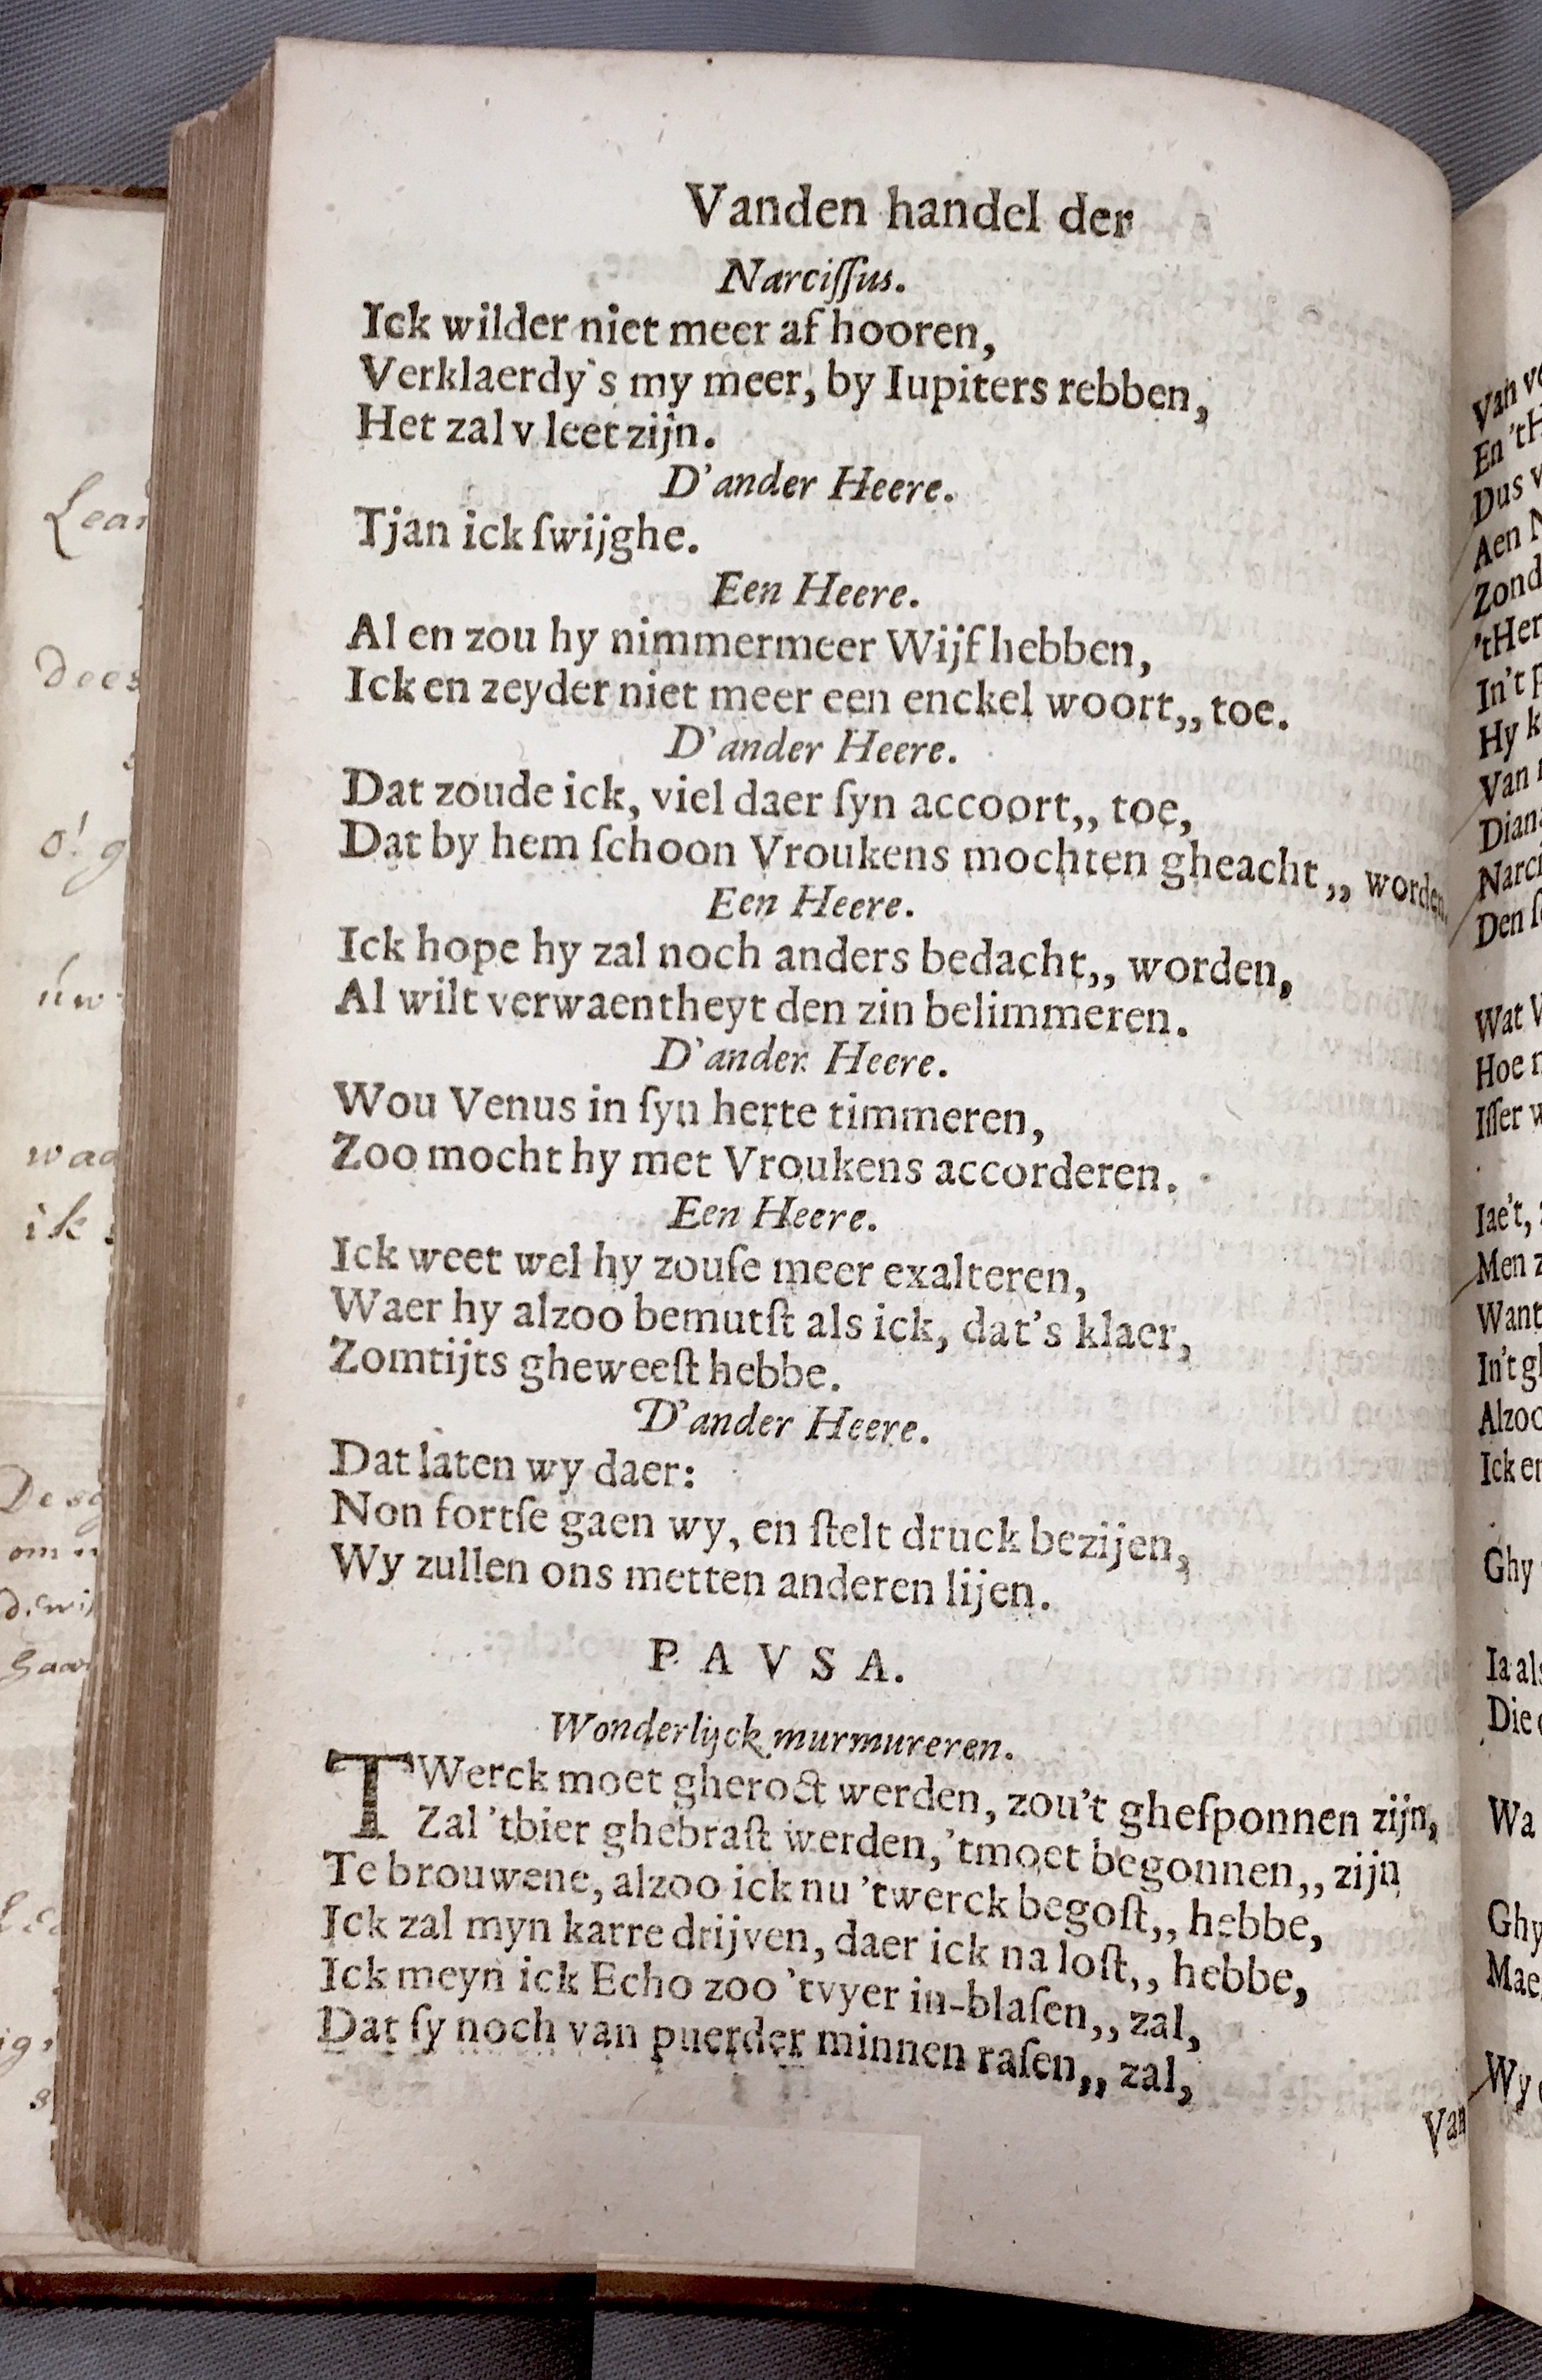 Vanden handel der
Narciſſus.
Ick wilder niet meer af hooren,
Verklaerdy's my meer, by Iupiters rebben,
Het zal v leet zijn.
D'ander Heere.
Tjan ick ſwijghe.
Een Heere.
Al en zou hy nimmermeer Wijf hebben,
Ick en zeyder niet meer een enckel woort,, toe.
D'ander Heere.
Dat zoude ick, viel daer ſyn accoort,, toe,
Dat by hem ſchoon Vroukens mochten gheacht,, worden.
Een Heere.
Ick hope hy zal noch anders bedacht,, worden,
Al wilt verwaentheyt den zin belimmeren.
D'ander Heere.
Wou Venus in ſyn herte timmeren,
Zoo mocht hy met Vroukens accorderen.
Een Heere.
Ick weet wel hy zouſe meer exalteren,
Waer hy alzoo bemutſt als ick, dat's klaer,
Zomtijts gheweeſt hebbe.
D'ander Heere.
Dat laten wy daer:
Non fortſe gaen wy, en ſtelt druck bezijen,
Wy zullen ons metten anderen lijen.
PAVSA.
Wonderlijck murmureren.
TWerck moet gheroct werden, zou't gheſponnen zijn,
Zal 'tbier ghebraſt werden, 'tmoet begonnen,, zijn
Te brouwene, alzoo ick nu 'twerck begoſt,, hebbe,
Ick zal myn karre drijven, daer ick na loſt,, hebbe,
Ick meyn ick Echo zoo 'tvyer in-blaſen,, zal,
Dat ſy noch van puerder minnen raſen,, zal,
Van
Dus
Aen
'tHer
In't
Hy
Van
Den
Wat
Hoe
Iſſer
Iae't,
Men
Want
Alzoo
Ick en
Ghy
Ia als
Die
Wa
Ghy
Mae
Wy
dees
o!
ik